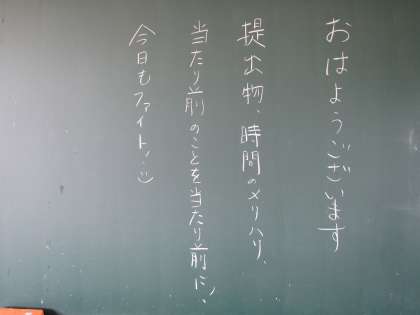 おはようございます
提出物、時間のメリハリ、
当たり前のことを当たり前に!、
今日もファイト!:)